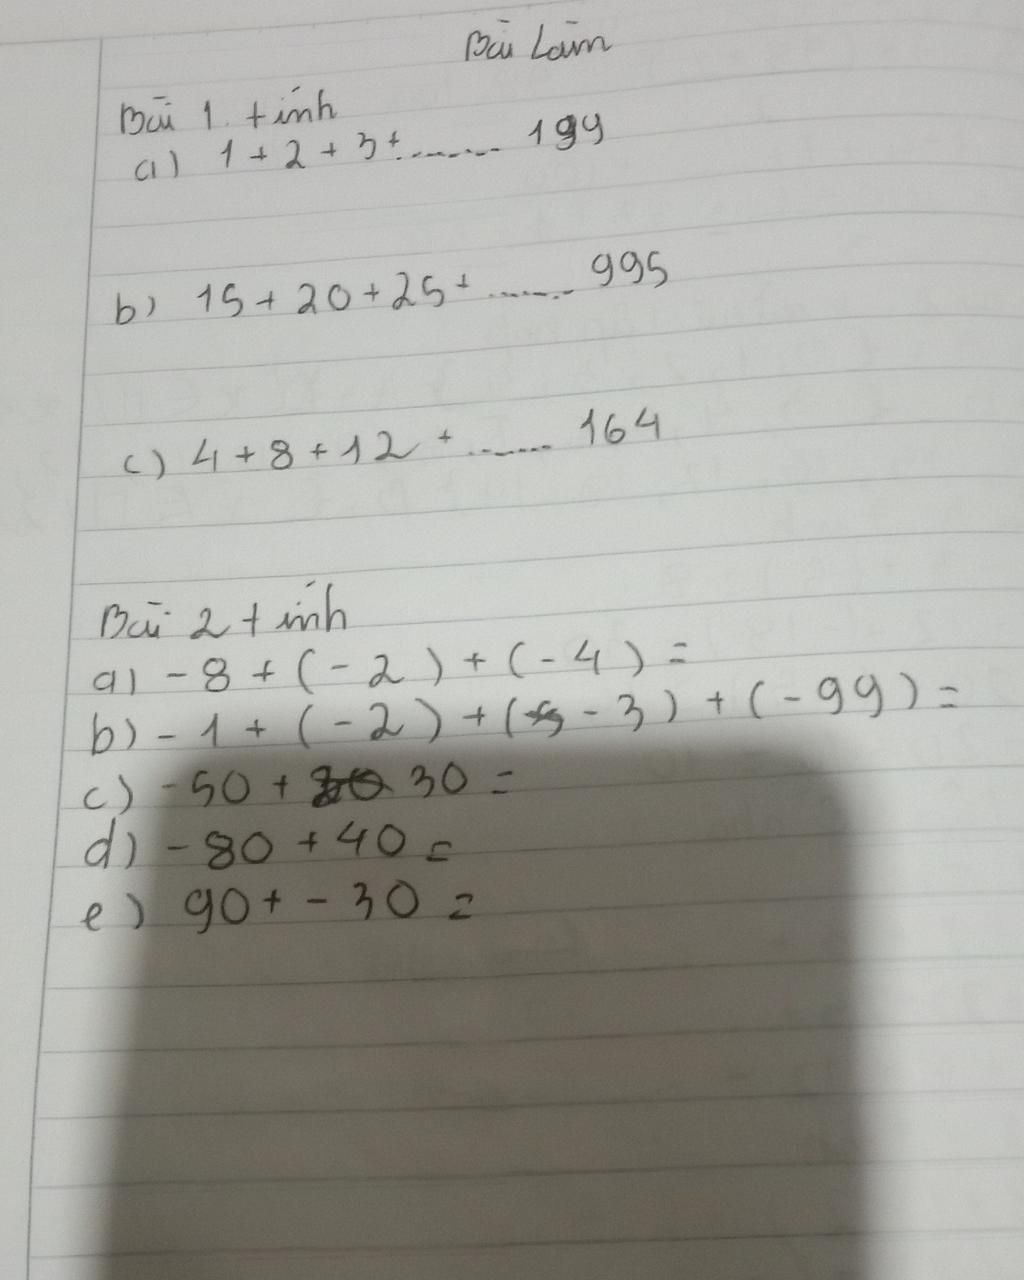 Bài Làm
Bài 1. tính
a) 1 + 2 + 3 + ........ 199
b) 15 + 20 + 25 + ....... 995
c) 4 + 8 + 12 + ....... 164
Bài 2 tính
a) - 8 + ( - 2 ) + ( - 4 ) =
b) - 1 + ( - 2 ) + ( - 3 ) + ( - 99 ) =
c) - 50 + 30 =
d) - 80 + 40 =
e) 90 + - 30 =